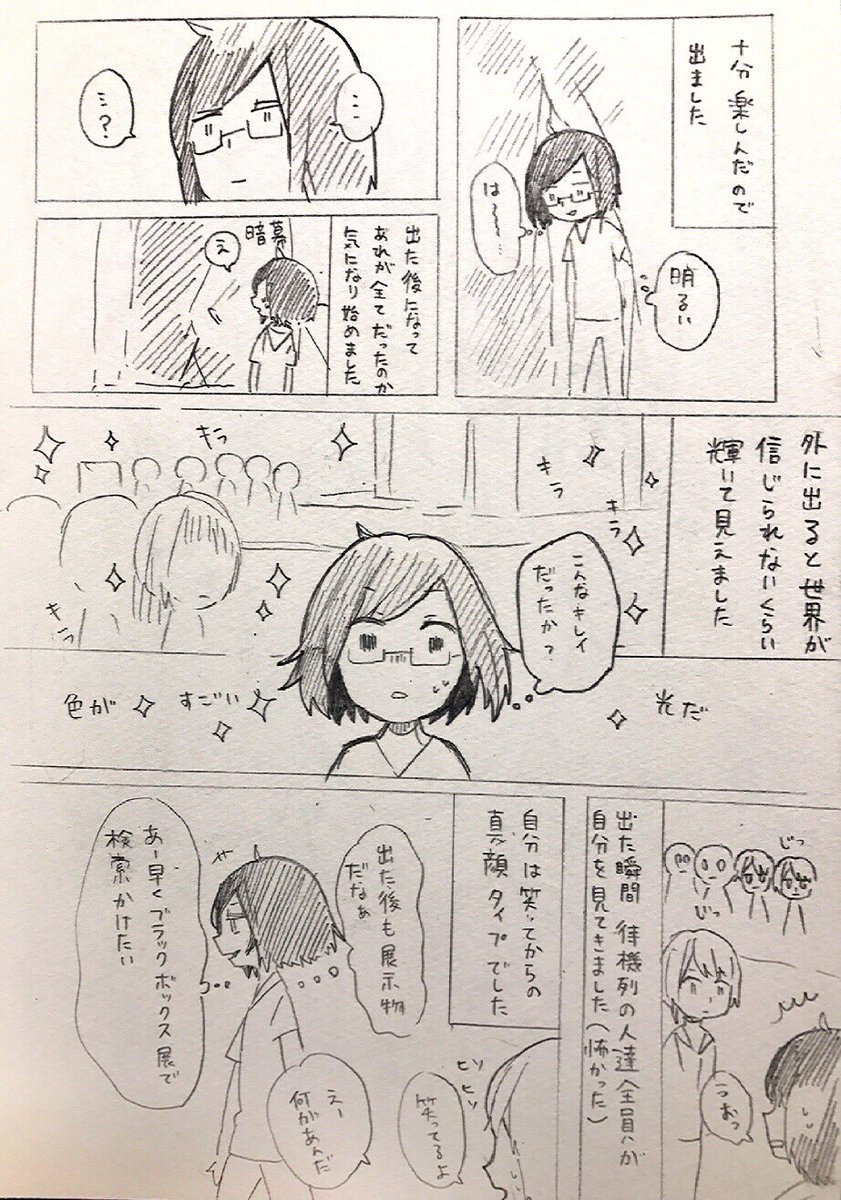 十分楽しんだので
出ました
明るい
は〜〜〜…
…
…?
出た後になって
あれが全てだったのか
気になり始めました
暗幕
え
外に出ると世界が
信じられないくらい
輝いて見えました
キラ
キラ
キラ
キラ
こんなキレイ
だったか?
光だ
すごい
色が
じっ
じっ
うおっ
出た瞬間 待機列の人達全員が
自分を見てきました(怖かった)
自分は笑ってからの
真顔タイプでした
ヒソ
ヒソ
笑ってるよ
えー
何があんだ
出た後も展示物
だなぁ
あー早くブラックボックス展で
検索かけたい